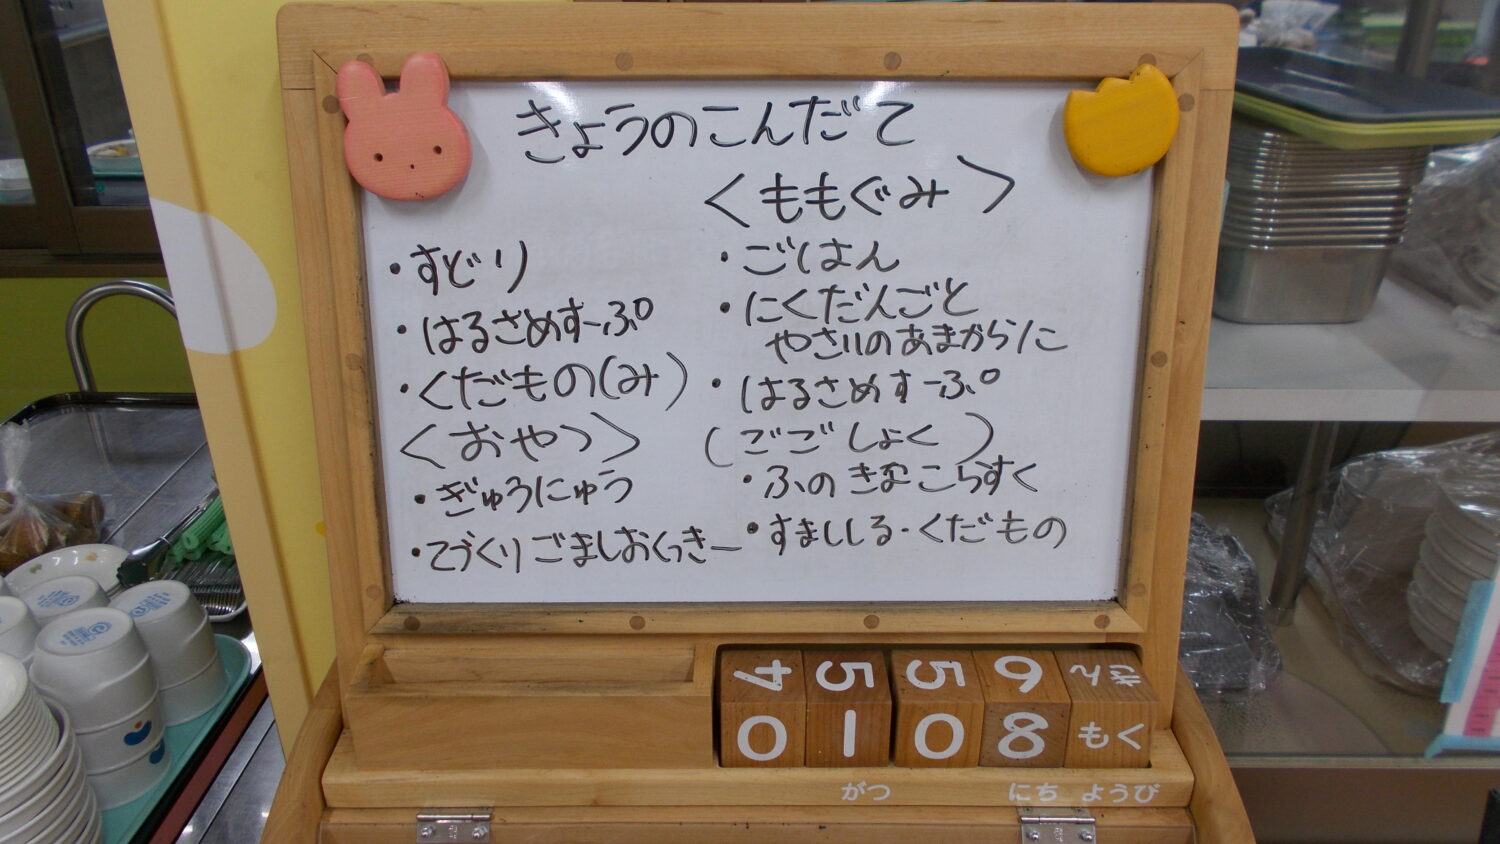 きょうのこんだて
・すどり
・はるさめすーぷ
・くだもの(み)
<おやつ>
・ぎゅうにゅう
・てづくりごましおくっきー
<ももぐみ>
・ごはん
・にくだんごと
やさいのあまからに
・はるさめすーぷ
(ごごしょく)
・ふのきなこらすく
・すましじる・くだもの
4 5 5 9
0 1 0 8 もく
がつ にち ようび